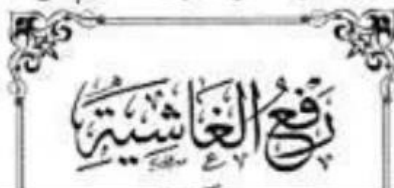 رَفْعُ الغَاشِيَةِ